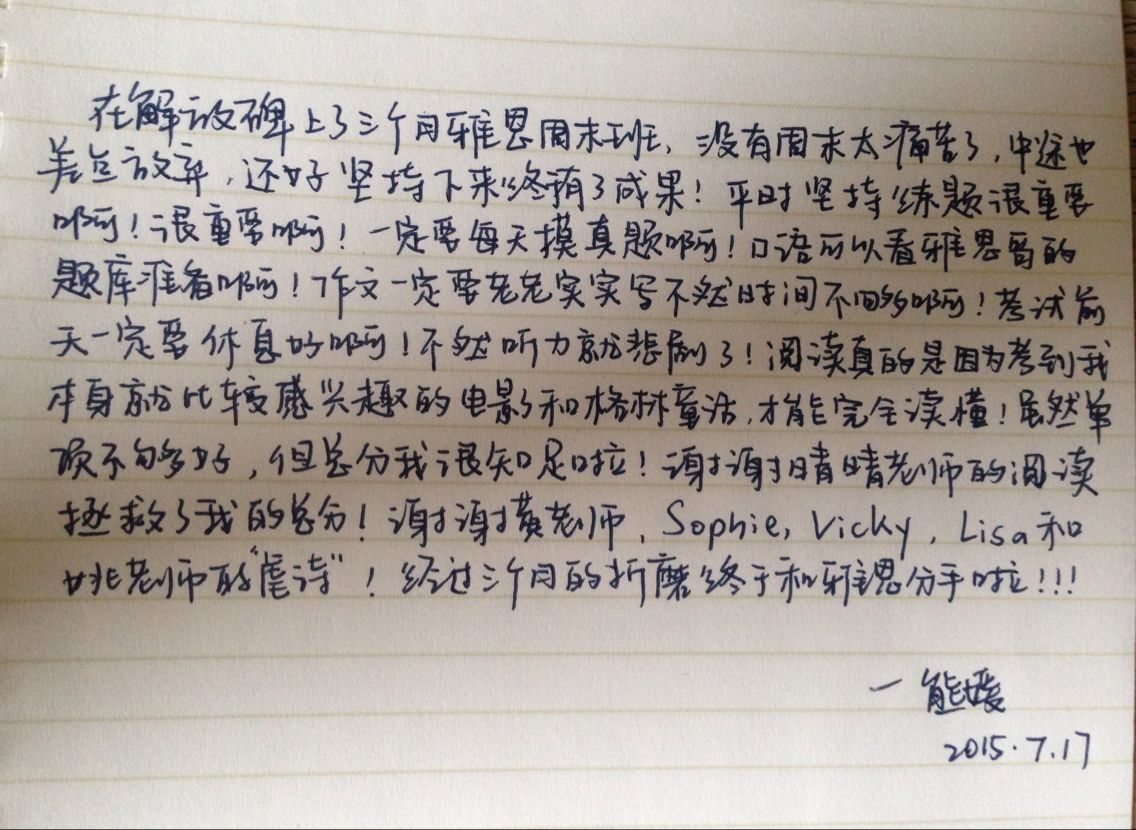 在解放碑上了三个月雅思周末班，没有周末太痛苦了，中途也
差点放弃，还好坚持下来终有了成果！平时坚持练题很重要
啊！很重要啊！一定要每天摸真题啊！口语可以看雅思哥的
题库准备啊！作文一定要老老实实写不然时间不够啊！考试前
天一定要休息好啊！不然听力就悲剧了！阅读真的是因为考到我
本身就比较感兴趣的电影和格林童话，才能完全读懂！虽然单
项不够好，但总分我很知足啦！谢谢晴晴老师的阅读
拯救了我的总分！谢谢黄老师，Sophie, Vicky, Lisa和
姚老师的“虐待”！经过三个月的折磨终于和雅思分手啦！！！
一熊媛
2015.7.17